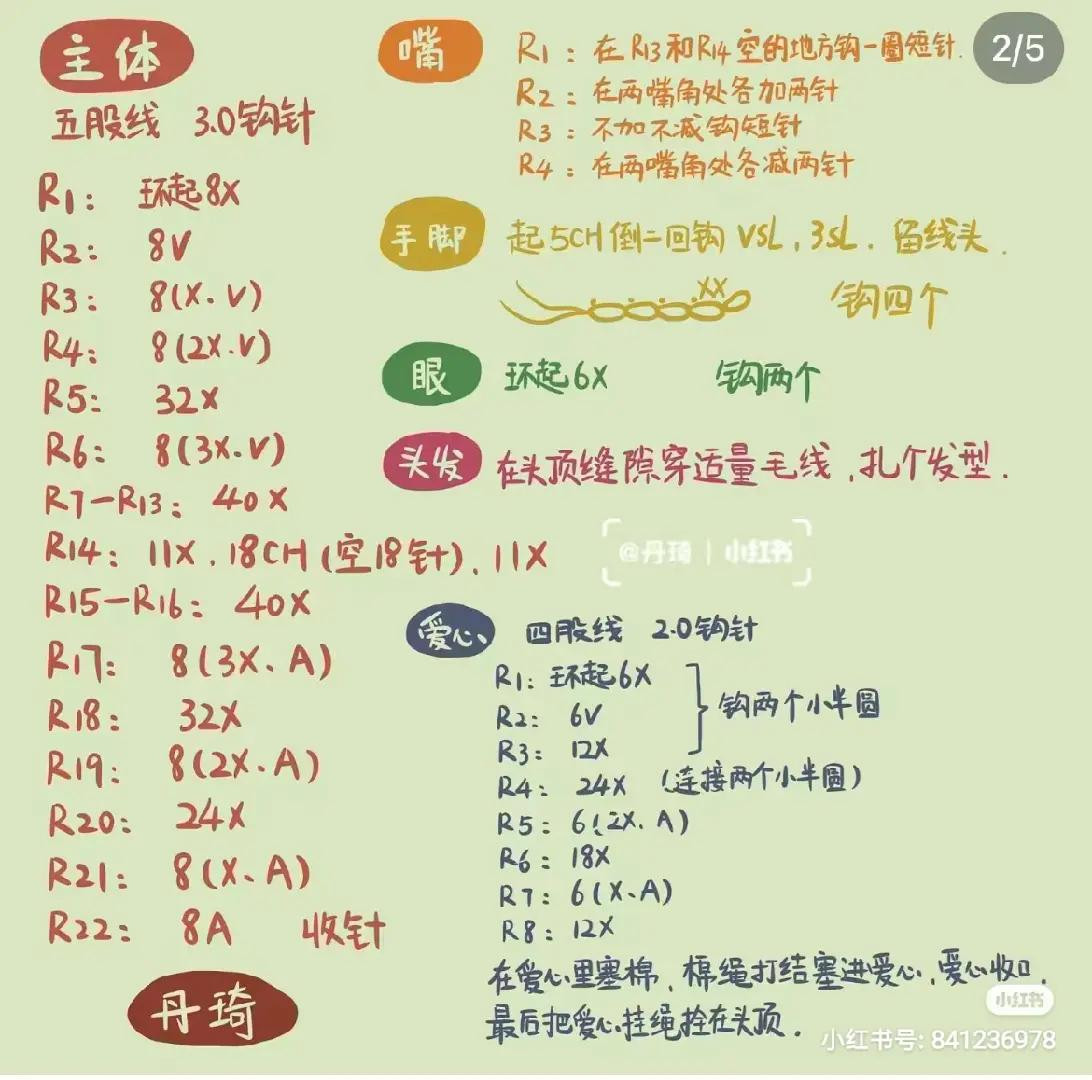 主体
五股线 3.0钩针
R1: 环起8X
R2: 8V
R3: 8(X.V)
R4: 8(2X.V)
R5: 32X
R6: 8(3X.V)
R7-R13: 40X
R14: 11X.18CH(空18针).11X
R15-R16: 40X
R17: 8(3X.A)
R18: 32X
R19: 8(2X.A)
R20: 24X
R21: 8(X.A)
R22: 8A 收针
丹琦
嘴
R1: 在R13和R14空的地方钩一圈短针.
R2: 在两嘴角处各加两针
R3: 不加不减钩短针
R4: 在两嘴角处各减两针
2/5
手脚
起5CH倒二回钩VSL.3SL.留线头.
XX
钩四个
眼
环起6X 钩两个
头发
在头顶缝隙穿适量毛线,扎个发型.
@丹琦 | 小红书
爱心
四股线 2.0钩针
R1: 环起6X
R2: 6V
R3: 12X
钩两个小半圆
R4: 24X (连接两个小半圆)
R5: 6(2X.A)
R6: 18X
R7: 6(X.A)
R8: 12X
在爱心里塞棉,棉绳打结塞进爱心,爱心收口.
最后把爱心挂绳拴在头顶.
小红书
小红书号: 841236978